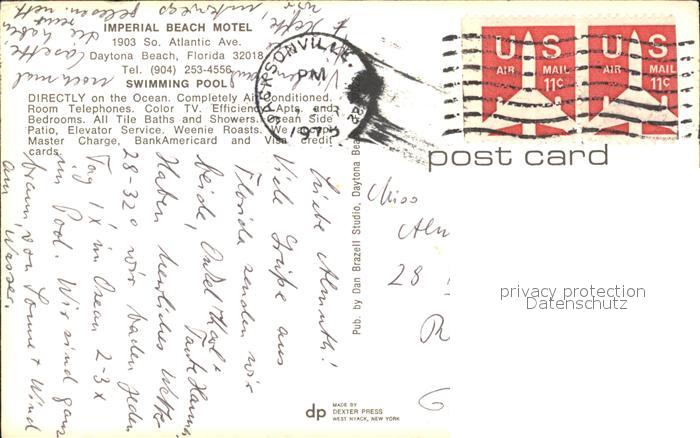 IMPERIAL BEACH MOTEL
1903 So. Atlantic Ave.
Daytona Beach, Florida 32018
Tel. (904) 253-4556
SWIMMING POOL
DIRECTLY on the Ocean. Completely Air Conditioned.
Room Telephones. Color TV. Efficiency Apts. and
Bedrooms. All Tile Baths and Showers. Ocean Side
Patio, Elevator Service. Weenie Roasts. We accept
Master Charge, BankAmericard and Visa credit
cards.
Liebe Almuth!
Viele Grüße aus
Florida senden wir
beide, Onkel Karl +
Tante Hanni
Haben herrliches Wetter
28-32° wir baden jeden
Tag 1x im Ozean 2-3x
im Pool. Wir sind ganz
braun von Sonne + Wind
am Wasser.
Pub. by Dan Brazell Studio, Daytona Bea
dp
MADE BY
DEXTER PRESS
WEST NYACK, NEW YORK
JACKSONVILLE,
PM
US
AIR MAIL
11c
US
AIR MAIL
11c
post card
Miss
Alm
28
R
G
privacy protection
Datenschutz